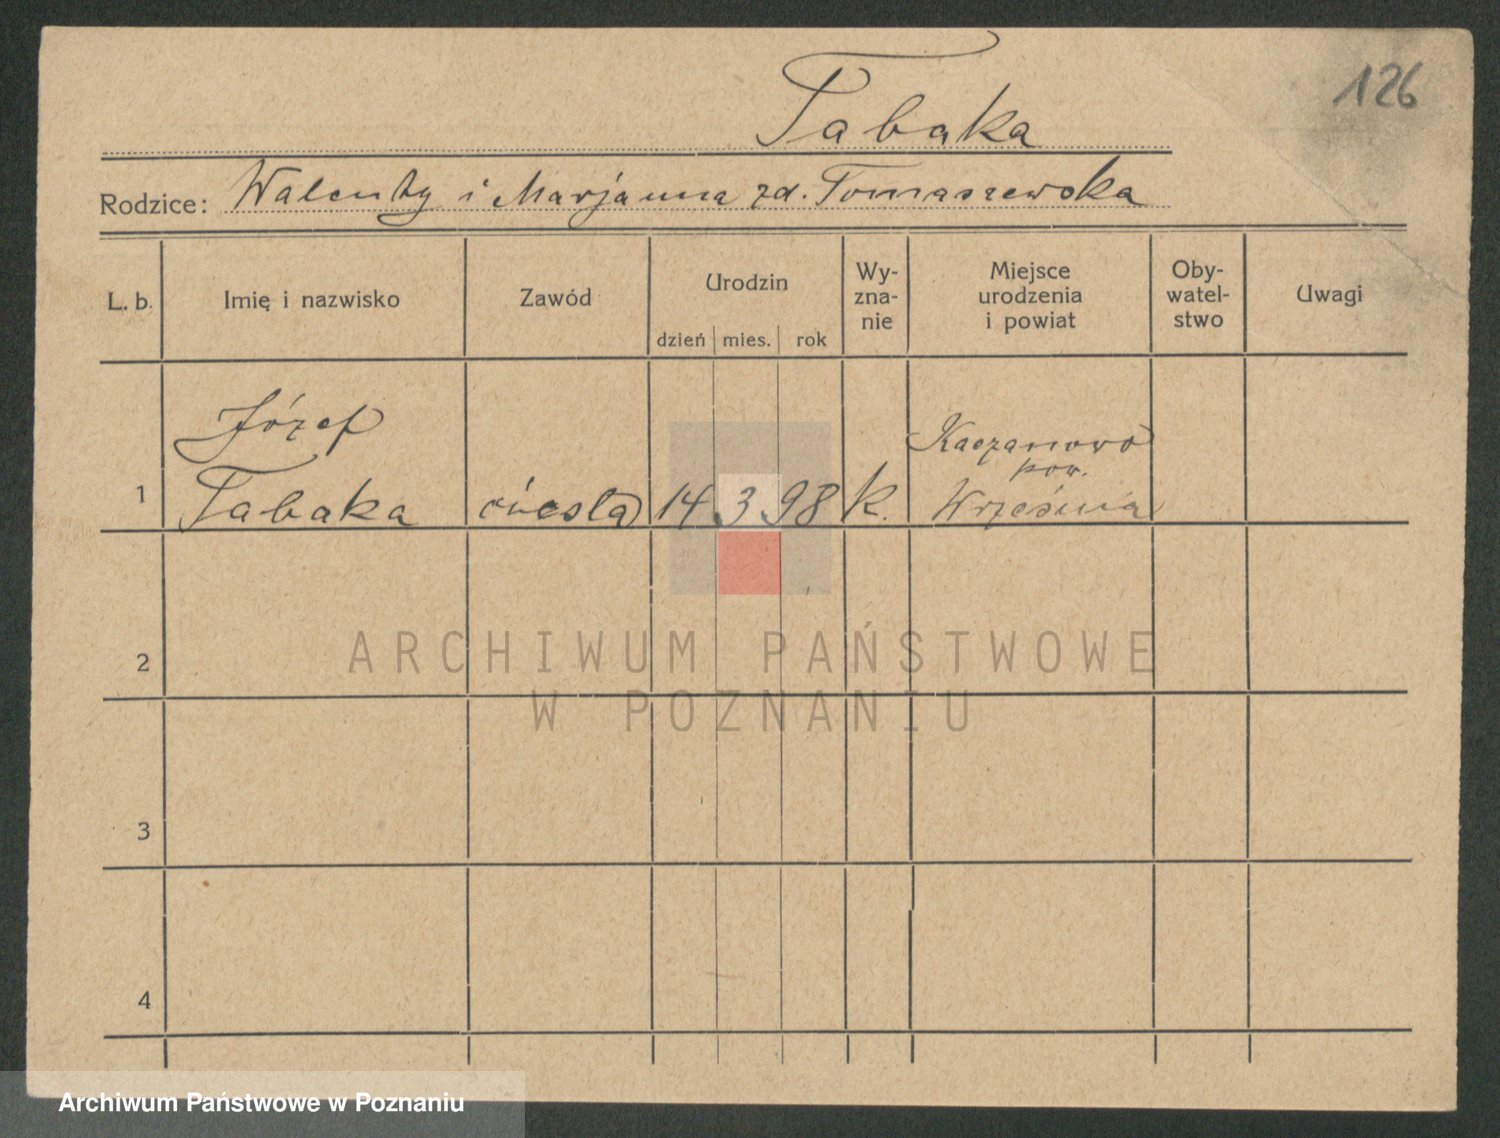 126
Tabaka
Rodzice: Walenty i Marjanna zd. Tomaszewska
L. b.
Imię i nazwisko
Zawód
Urodzin
dzień mies. rok
Wy-
zna-
nie
Miejsce
urodzenia
i powiat
Oby-
watel-
stwo
Uwagi
1
Józef
Tabaka
cieśla
14 3 98
k.
Kaczanowo
pow.
Września
2
ARCHIWUM PAŃSTWOWE
W POZNANIU
3
4
Archiwum Państwowe w Poznaniu